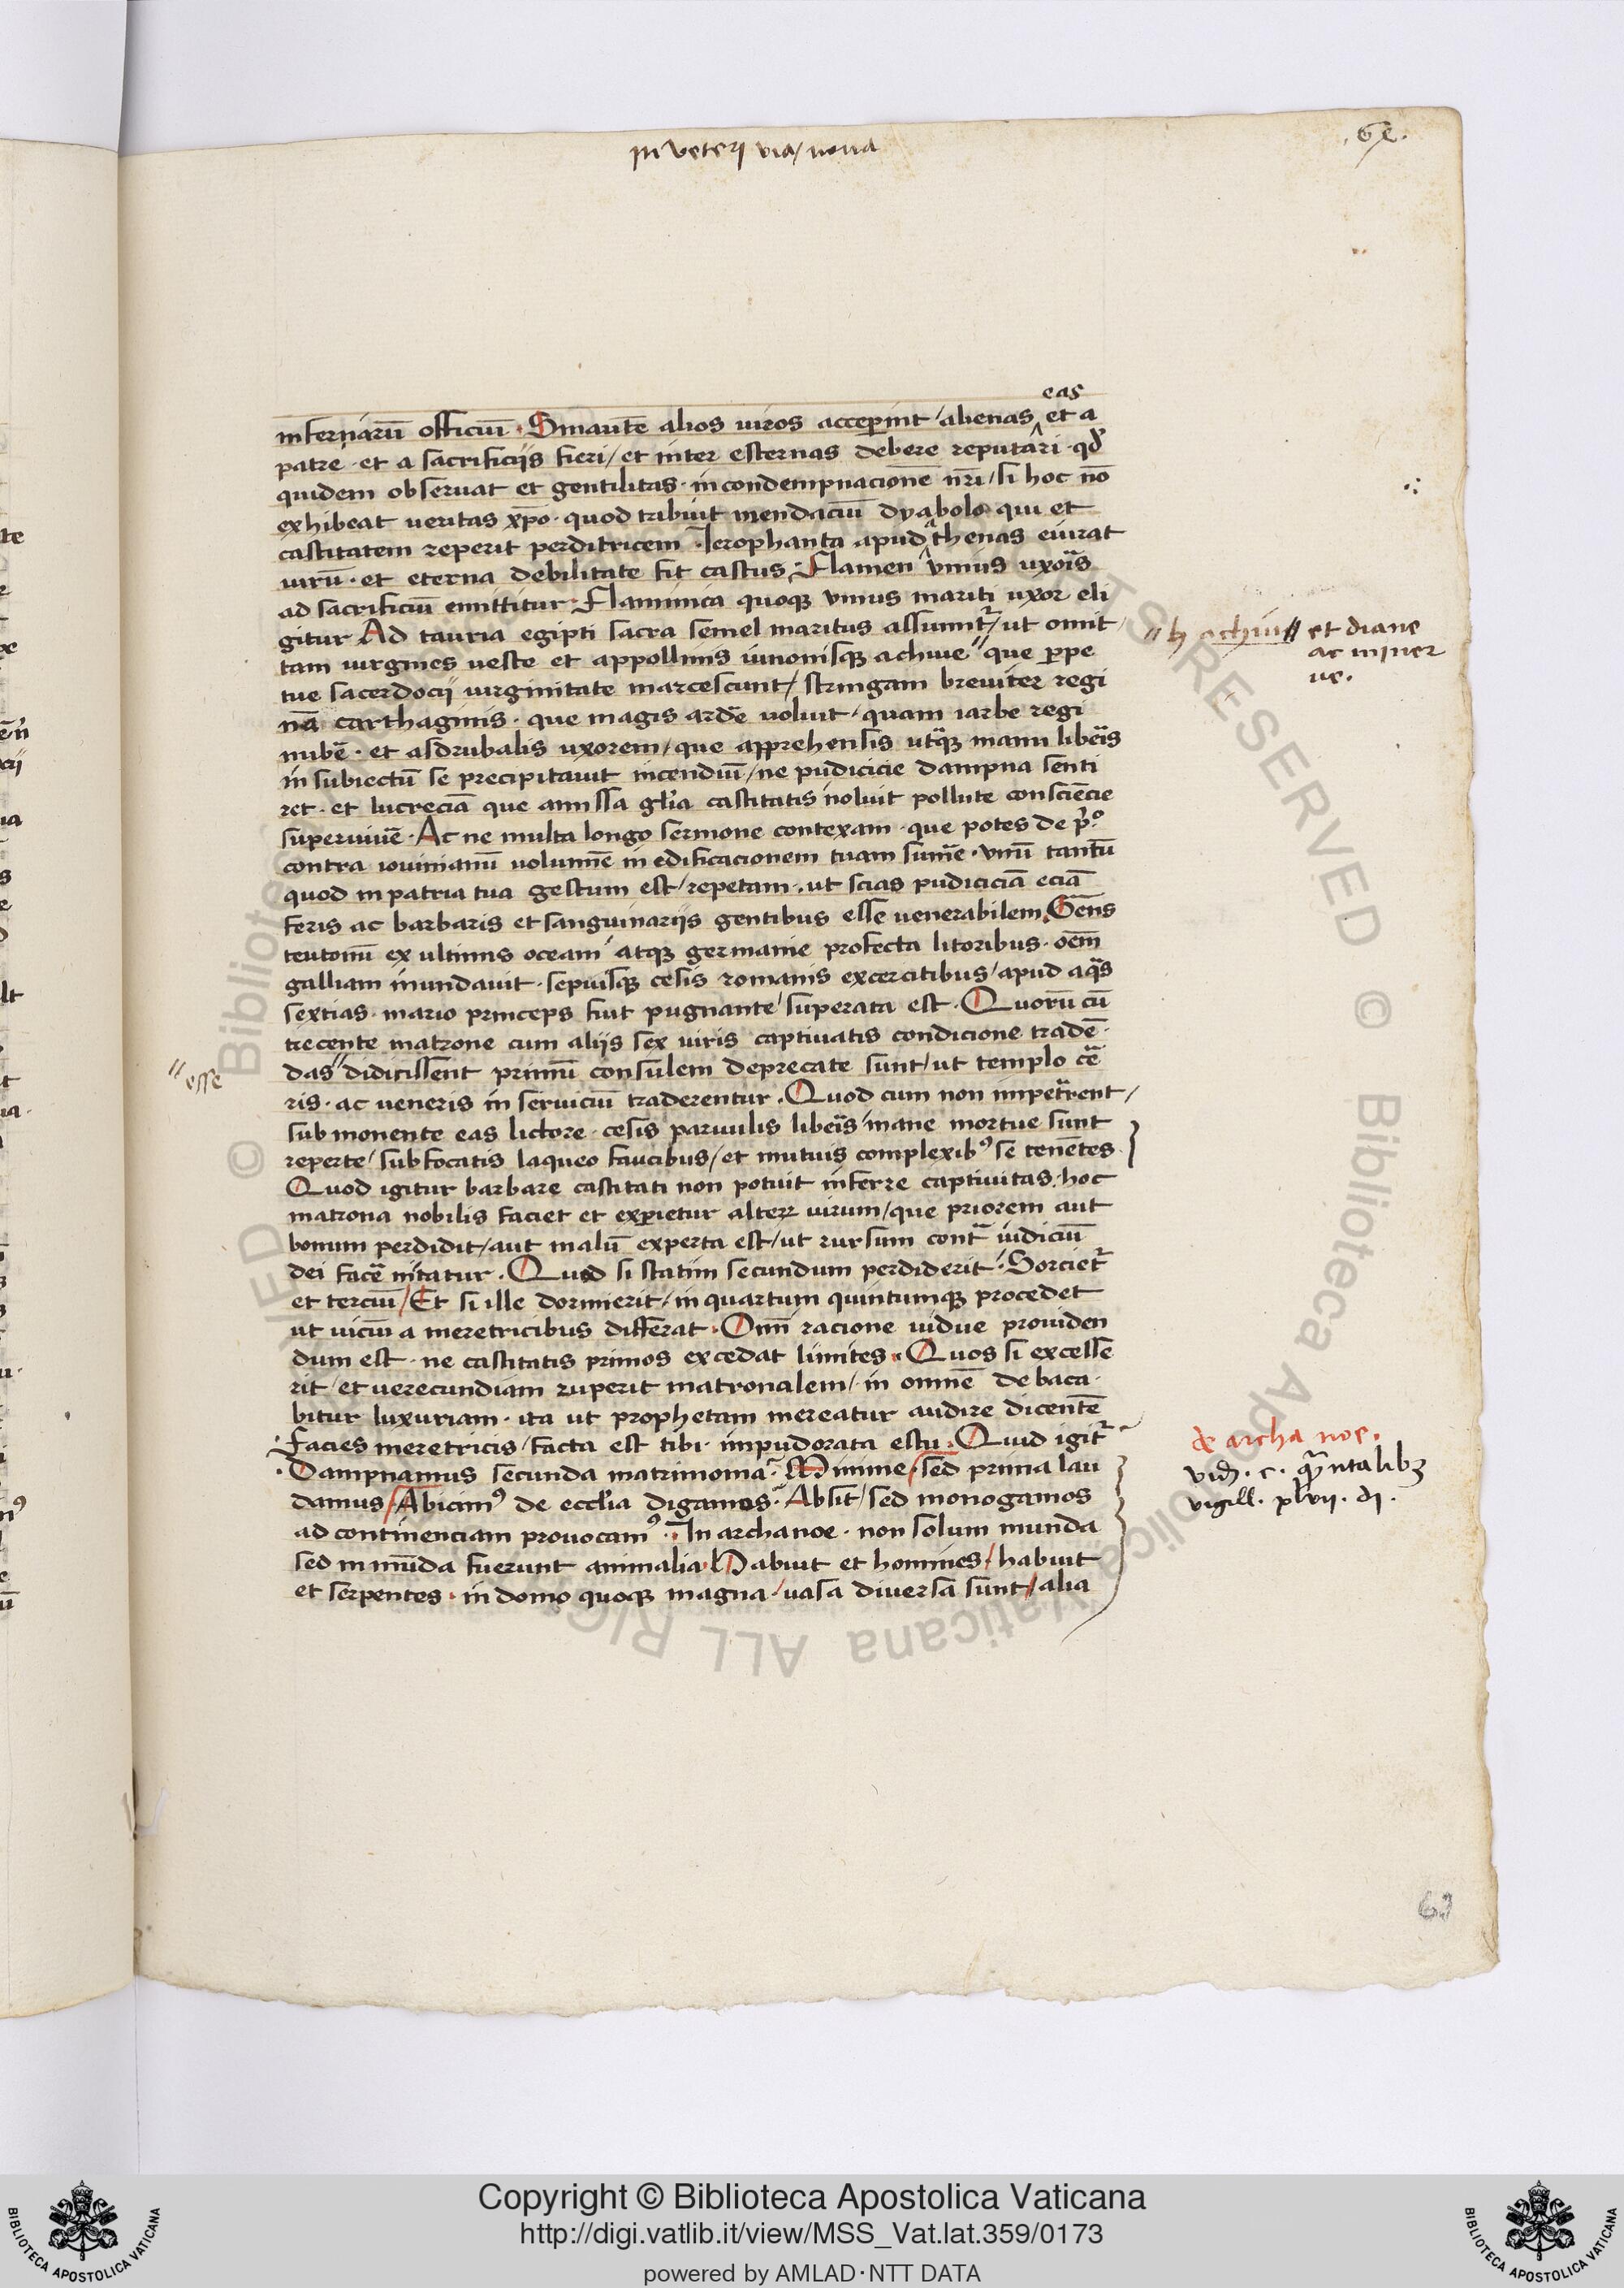 in veteri via / noua
eas
infernarū officiū · Sinautē alios uiros acceperint / alienas et a
patre · et a sacrificijs fieri / et inter esternas debere reputari · qđ
quidem obseruat et gentilitas · in condempnacionē nr̄i / si hoc nō
exhibeat ueritas xp̄o · quod tribuit mendaciū dyabolo qui et
castitatem reperit perditricem · Ierophanta apud thenas euirat
uirū · et eterna debilitate fit castus · Flamen vnius uxoris
ad sacrificiū emittitur · Flaminica quoqꝫ vnius mariti uxor eli
gitur Ad tauria egipti sacra semel maritus assumit᷑ / ut omit
tam uirgines ueste et appollinis iunonisqꝫ achiue // que ꝑpe
// h achiu // et diane
ac miner
ue.
tue sacerdocij uirginitate marcescunt / stringam breuiter regi
nā carthaginis · que magis ardē uoluit / quam iarbe regi
nubē · et asdrubalis uxorem / que apprehensis utqꝫ manu liberis
in subiectū se precipitauit incendiū / ne pudicicie dampna senti
ret · et lucreciā que amissa gl̄ia castitatis noluit pollute consciēcie
superuiuē · Ac ne multa longo sermone contexam · que potes de pͥº
contra iouinianū uolumīe in edificacionem tuam sumē · vnū tantū
quod in patria tua gestum est / repetam · ut scias pudiciciā eciā
feris ac barbaris et sanguinarijs gentibus esse uenerabilem Gens
teutonū ex ultimis oceani atqꝫ germanie profecta litoribus · oēm
galliam inundauit · sepiusqꝫ cesis romanis excercitibus / apud aqas
sextias · mario princeps fuit pugnante / superata est · Quorū cū
trecente matrone cum alijs sex uiris captiuatis condicione tradē
// esse
das // didicissent primū consulem deprecate sunt / ut templo ce
ris · ac ueneris in seruiciū traderentur · Quod cum non impetrarent /
sub monente eas lictore · cesis paruulis liberis / mane mortue sunt
reperte / subfocatis laqueo faucibus / et mutuis complexibꝰ se tenētes
Quod igitur barbare castitati non potuit inferre captiuitas · hoc
matrona nobilis faciet et experietur alterꝝ uirum / que priorem aut
bonum perdidit / aut malū experta est / ut rursum contra iudiciū
dei facē nitatur · Quod si statim secundum perdiderit · Sorciet᷑
et terciū / Et si ille dormierit / in quartum quintumqꝫ procedet
ut uiciū a meretricibus differat · Omī racione uidue prouiden
dum est · ne castitatis primos excedat limites · Quos si excesse
rit / et uerecundiam ruperit matronalem / in omnē debaca
bitur luxuriam · ita ut prophetam mereatur audire dicentē
Facies meretricis / facta est tibi · impudorata es tu · Quid igit᷑
Dampnamus secunda matrimonia · Minime / sed prima lau
damus / Abicimꝰ de eccl̄ia digamos · Absit / sed monogamos
ad continenciam prouocamꝰ · In archa noe · non solum munda
sed inmūda fuerunt animalia · Habuit et homines / habuit
et serpentes · in domo quoqꝫ magna / uasa diuersa sunt / alia
& archa noe.
vid. c. quantalibꝫ
vigill. xlvii. di.